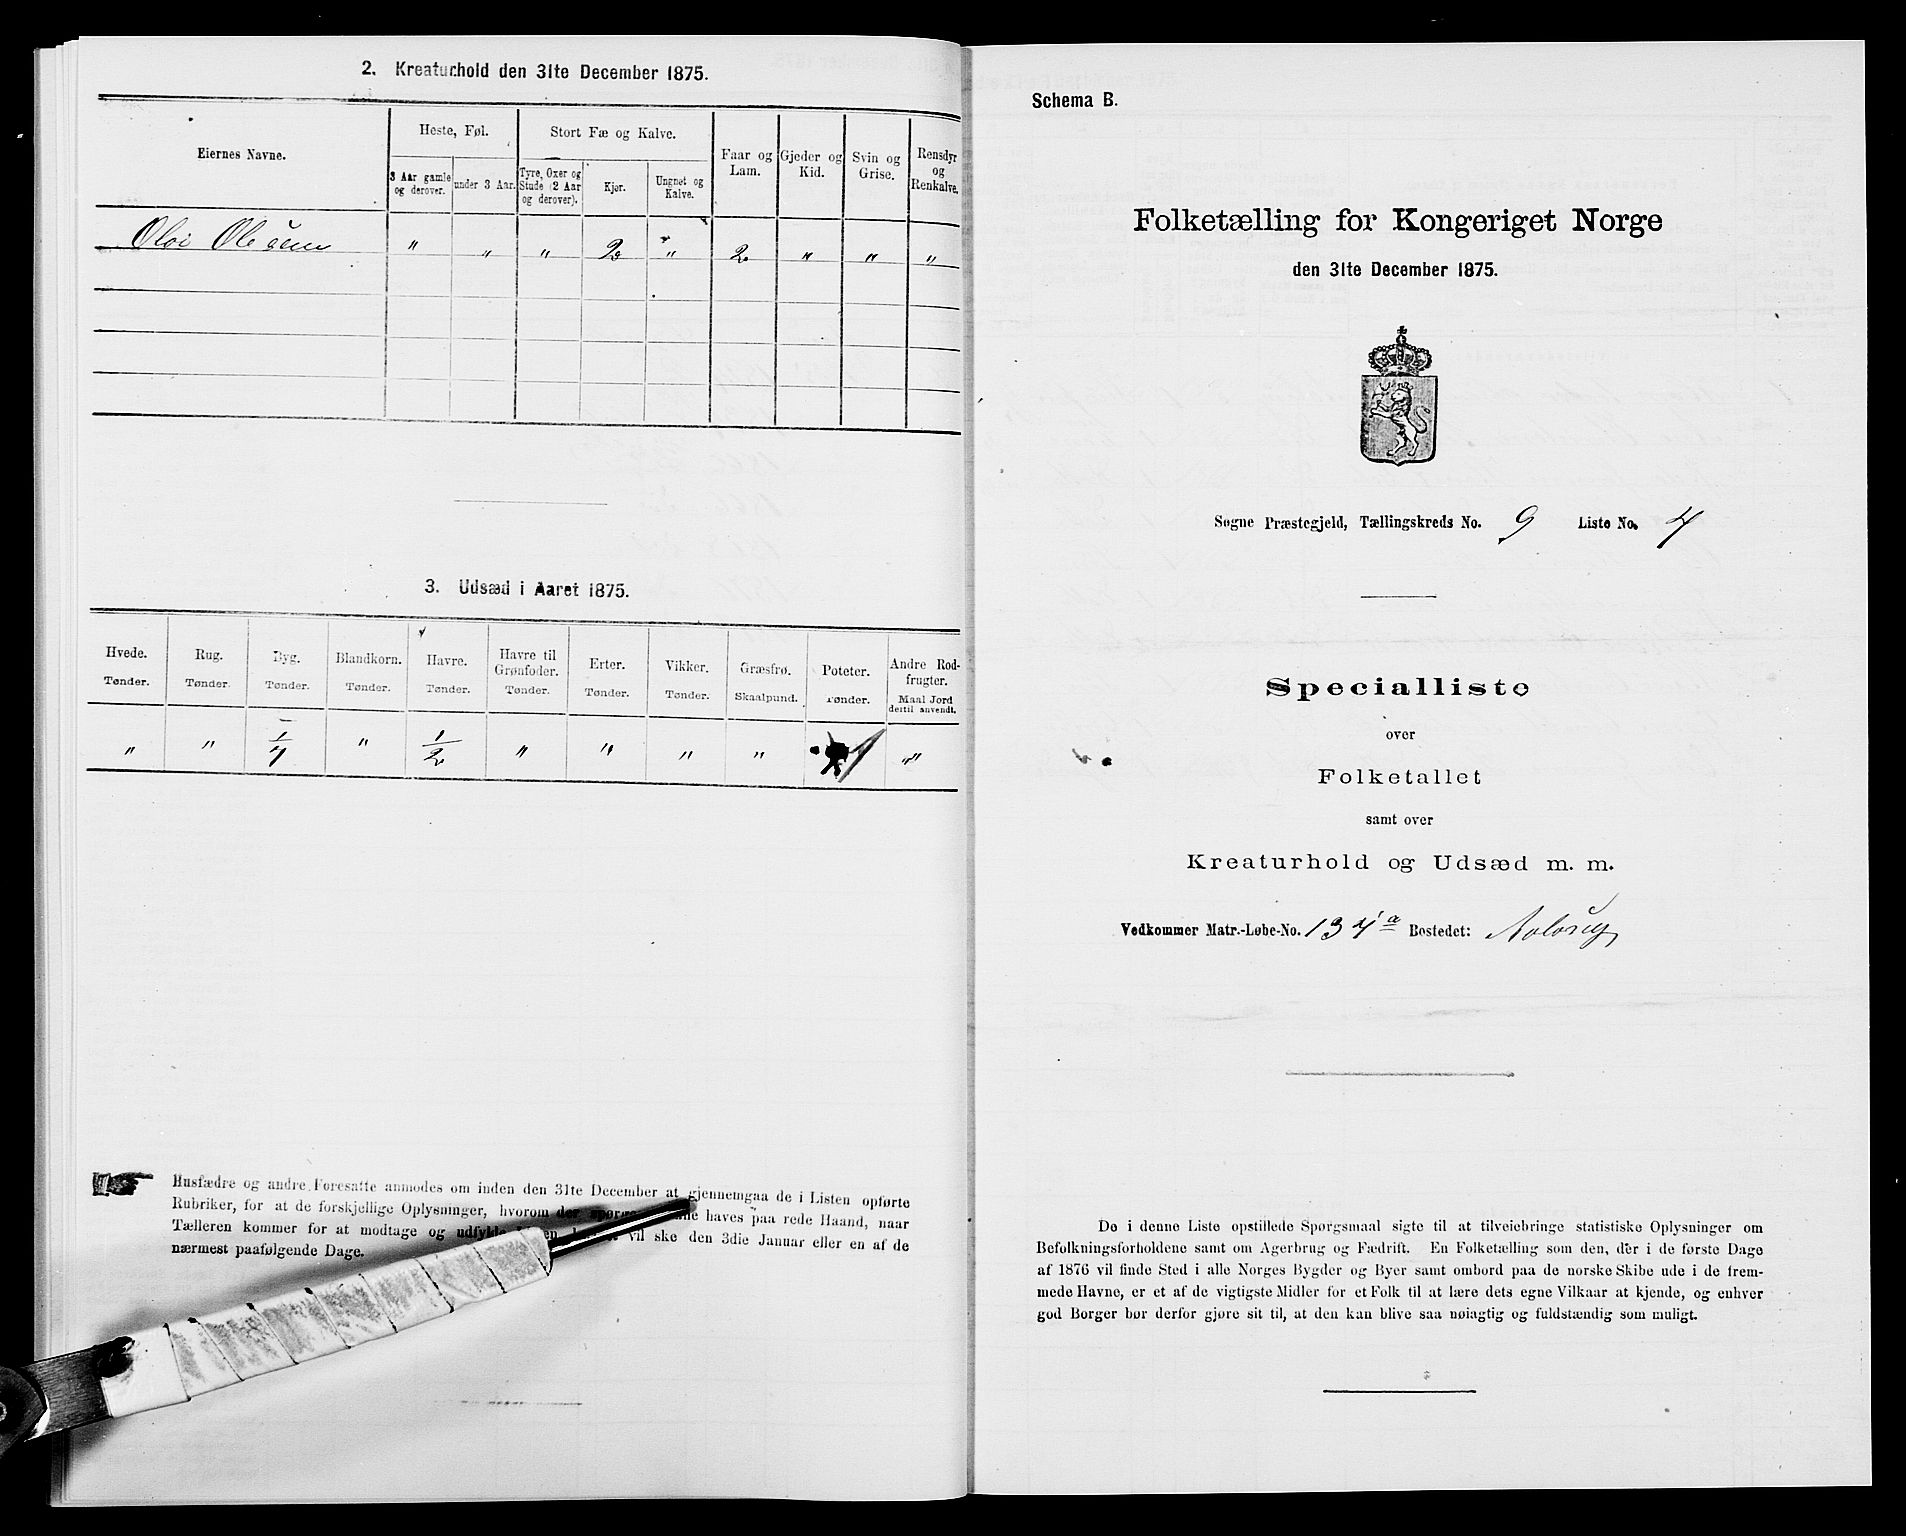 2. Kreaturhold den 31te December 1875.
Eiernes Navne.
Heste, Føl.
Stort Fæ og Kalve.
Faar og Lam.
Gjeder og Kid.
Svin og Grise.
Rensdyr og Renkalve.
3 Aar gamle og derover.
under 3 Aar.
Tyre, Oxer og Stude (2 Aar og derover).
Kjør.
Ungnøt og Kalve.
" " " 2 " 2 " " "
3. Udsæd i Aaret 1875.
Hvede. Rug. Byg. Blandkorn. Havre. Havre til Grønfoder. Erter. Vikker. Græsfrø. Poteter. Andre Rodfrugter.
Tønder. Tønder. Tønder. Tønder. Tønder. Tønder. Tønder. Tønder. Skaalpund. Tønder. Maal Jord dertil anvendt.
" " 1/4 " 1/2 " " " " 1 "
Husfædre og andre Foresatte anmodes om inden den 31te December at gjennemgaa de i Listen opførte
Rubriker, for at de forskjellige Oplysninger, hvorom der haves paa rede Haand, naar
Tælleren kommer for at modtage og udfylde vil ske den 3die Januar eller en af de
nærmest paafølgende Dage.
Schema B.
Folketælling for Kongeriget Norge
den 31te December 1875.
Søgne Præstegjeld, Tællingskreds No. 9 Liste No. 4
Specialliste
over
Folketallet
samt over
Kreaturhold og Udsæd m. m.
Vedkommer Matr.-Løbe-No. 134a Bostedet:
De i denne Liste opstillede Spørgsmaal sigte til at tilveiebringe statistiske Oplysninger om
Befolkningsforholdene samt om Agerbrug og Fædrift. En Folketælling som den, der i de første Dage
af 1876 vil finde Sted i alle Norges Bygder og Byer samt ombord paa de norske Skibe ude i de frem-
mede Havne, er et af de vigtigste Midler for et Folk til at lære dets egne Vilkaar at kjende, og enhver
god Borger bør derfor gjøre sit til, at den kan blive saa nøiagtig og fuldstændig som muligt.